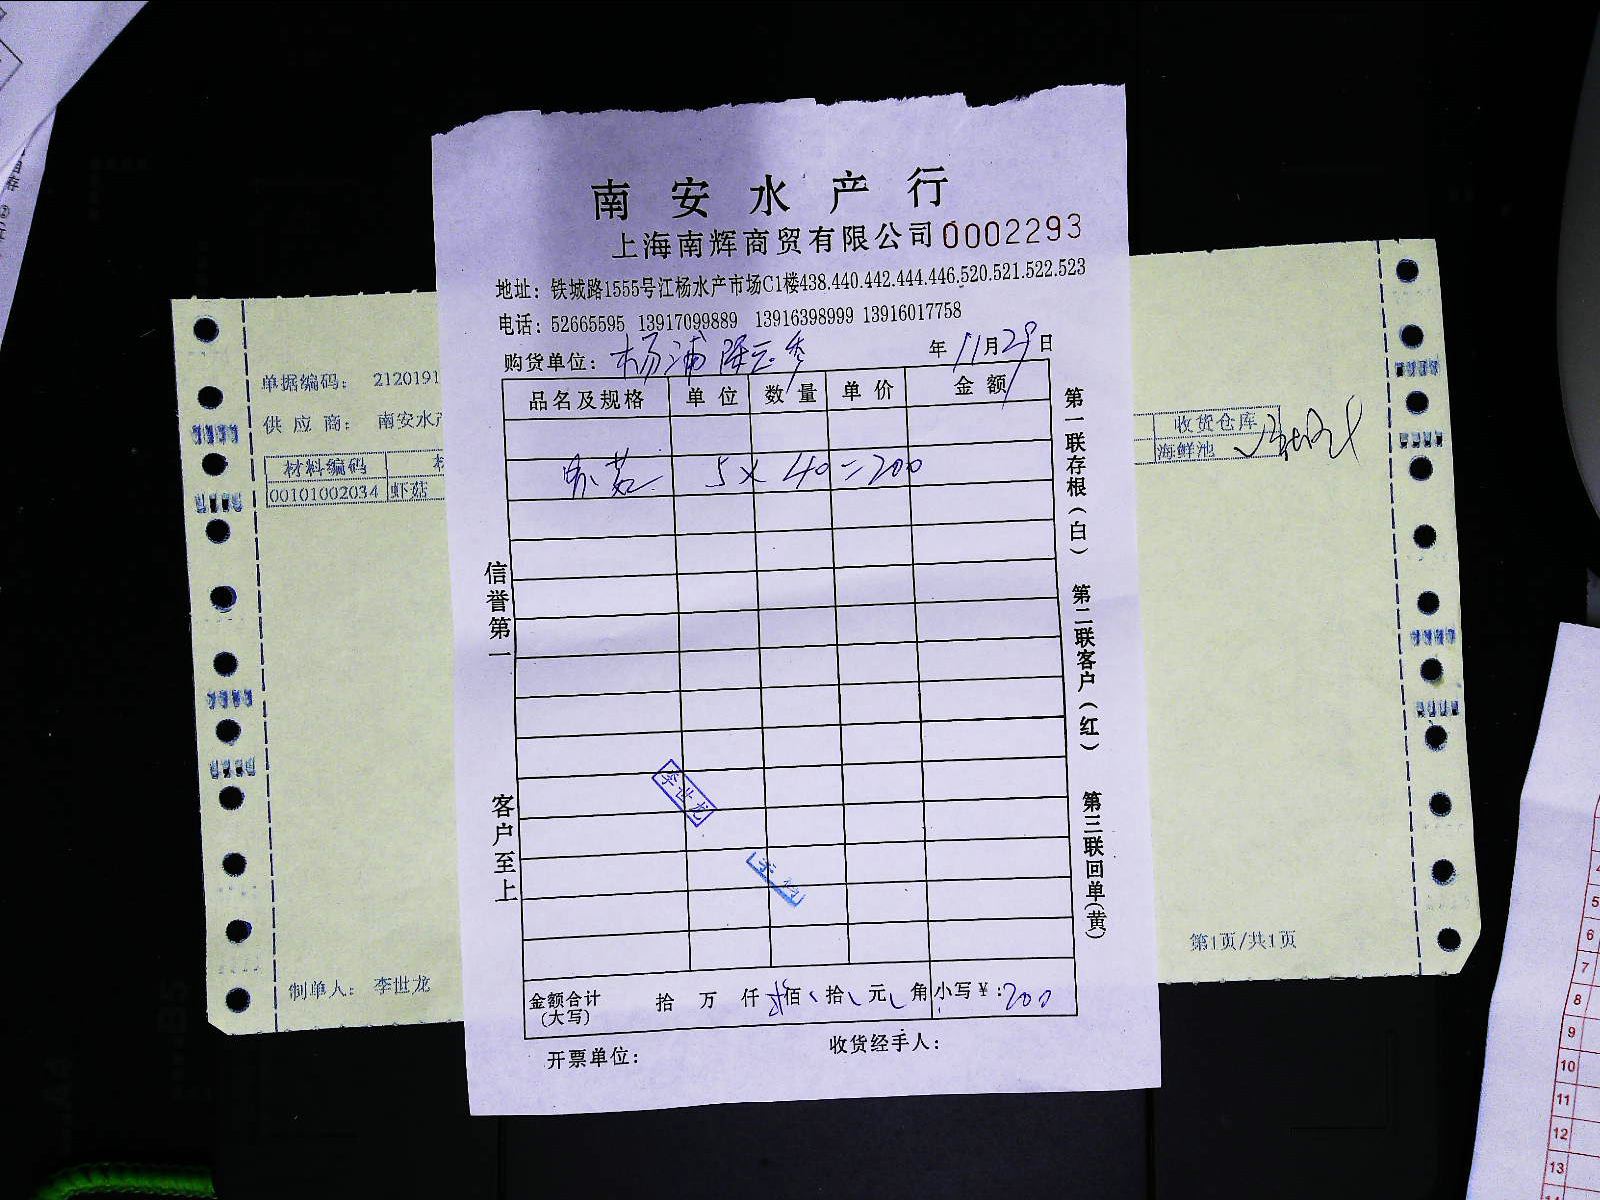 南安水产行
上海南辉商贸有限公司 0002293
地址：铁城路1555号江杨水产市场C1楼438.440.442.444.446.520.521.522.523
电话：52665595 13917099889 13916398999 13916017758
购货单位：杨浦 年11月29日
品名及规格 单位 数量 单价 金额
菇 5×40=200
信誉第一
客户至上
第一联存根（白）
第二联客户（红）
第三联回单（黄）
李世龙
金额合计（大写） 拾 万 仟 佰 拾 元 角 小写¥：200
开票单位： 收货经手人：
单据编码： 2120191
供应商： 南安水产
材料编码
00101002034 虾菇
收货仓库
海鲜池
制单人： 李世龙
第1页/共1页
5
6
7
8
9
10
11
12
13